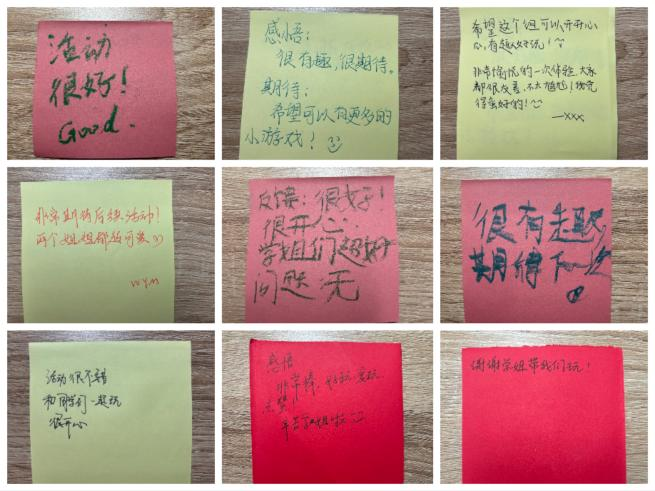 活动
很好!
Good.
感悟:
很有趣,很期待。
期待:
希望可以有更多的
小游戏!
希望这个组可以开开心
心,有趣好玩!
非常愉悦的一次体验,大家
都很友善,不太尴尬!我觉
得蛮好的!
—xxx
非常期待后续活动!
两个姐姐都超可爱
WYM
反馈:很好!
很开心.
学姐们超好
问题:无
很有趣
期待下次
活动很不错
和同学们一起玩
很开心
感悟
非常棒,好玩爱玩
点赞!
辛苦学姐啦
谢谢学姐带我们玩!